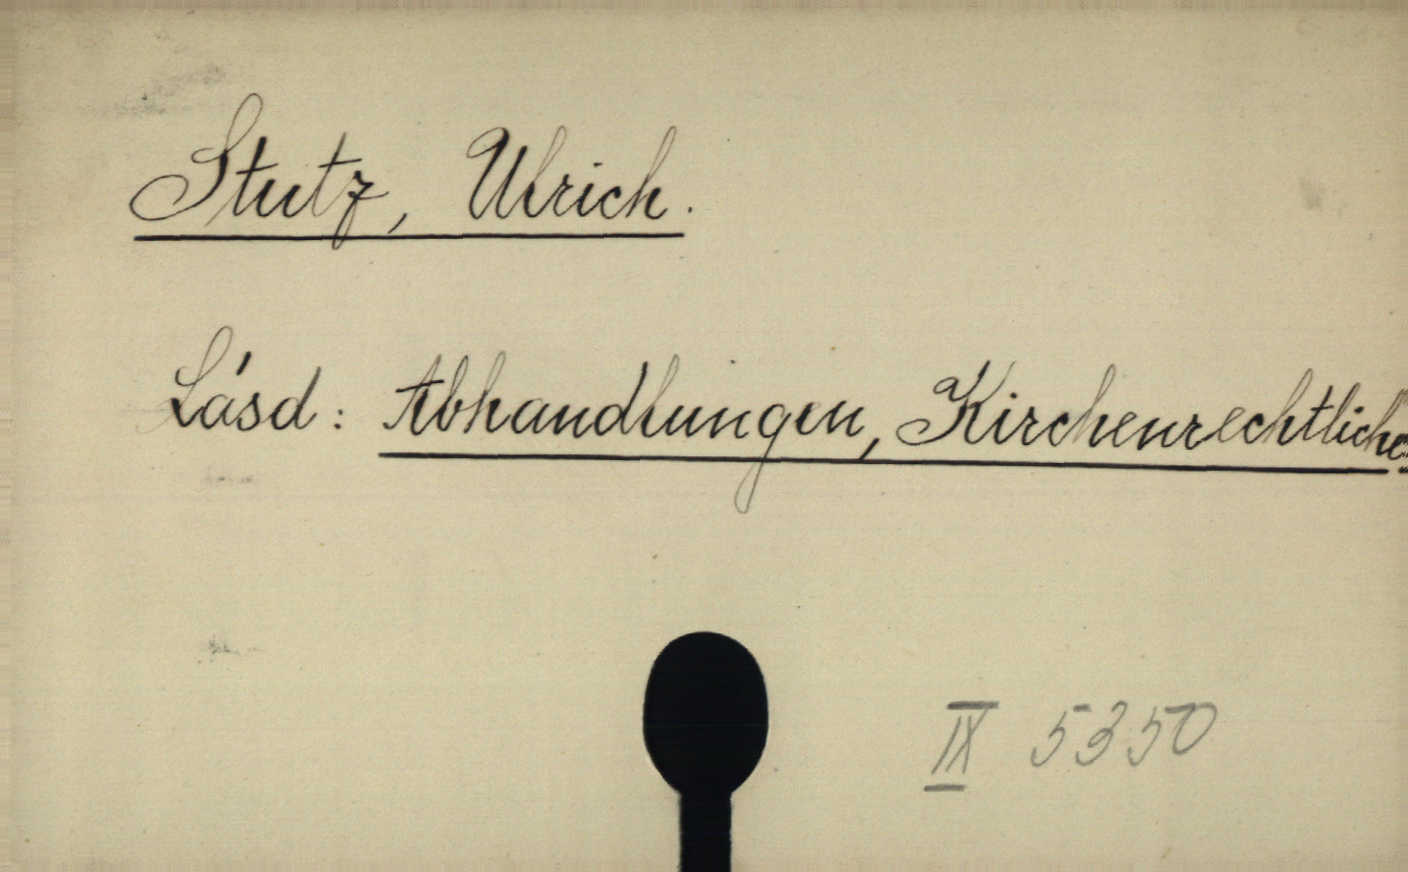 Stutz, Ulrich.
Lásd: Abhandlungen, Kirchenrechtliche.
IX 5350